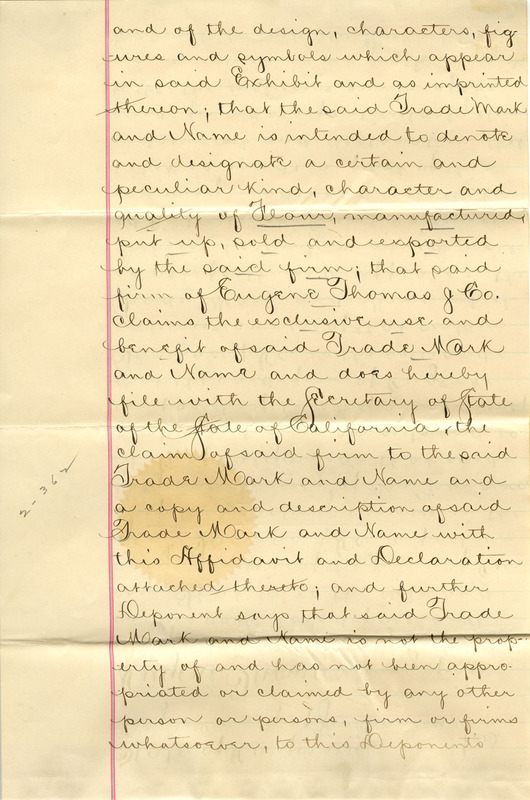 and of the design, characters, fig-
ures and symbols which appear
in said Exhibit and as imprinted
thereon; that the said Trade Mark
and Name is intended to denote
and designate a certain and
peculiar kind, character and
quality of Flour, manufactured,
put up, sold and exported
by the said firm; that said
firm of Eugene Thomas & Co.
claims the exclusive use and
benefit of said Trade Mark
and Name and does hereby
file with the Secretary of State
of the State of California, the
claim of said firm to the said
Trade Mark and Name and
a copy and description of said
Trade Mark and Name with
this Affidavit and Declaration
attached thereto; and further
Deponent says that said Trade
Mark and Name is not the prop-
erty of and has not been appro-
priated or claimed by any other
person or persons, firm or firms
whatsoever, to this Deponents
2-362